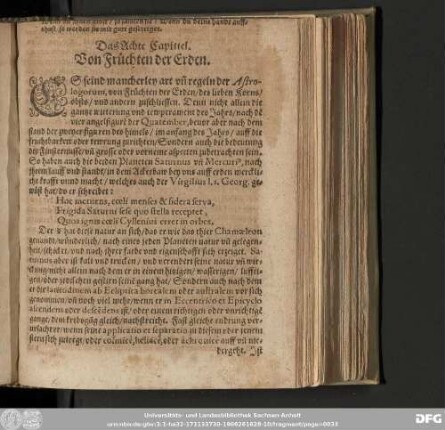 Daß Achte Capittel.
Von Früchten der Erden.
ES seind mancherley art vñ regeln der Astro-
logorum, von Früchten der Erden / des lieben Korns /
obsts / vnd andern zuschliessen. Denn nicht allein die
gantze witterung vnd temperament des Jahrs / nach dē
vier angelfiguren der Quatember, bevor aber nach dem
stand der himels / im anfang des Jahrs / auff die
fruchtbarkeit oder tewrung zurichten / Sondern auch die bedeutung
der Finsternisse / vñ grosse oder vorneme aspecten zubetrachten sein.
So haben auch die beiden Planeten Saturnus vñ Mercurꝰ, nach
jhrem lauff vnd standt / in dem Ackerbaw bey vns auff erden werckli-
che krafft vnnd macht / welches auch der Virgilius l. 1. Georg. ge-
wüst hat / do er schreibet:
Hoc metuens, cœli menses & sidera serva,
Frigida Saturni sese quo stella receptet,
Quos ignis cœli Cyllenius erret in orbes,
Der ☿ hat diese natur an sich / das er wie das thier Chamæleon
genandt / wünderlich / nach eines jeden Planeten natur vñ gelegen-
heit / sich nach jhrer farbe vnd eigenschafft sich erzeiget. Sa-
turnus aber ist kalt vnd trucken / vnd verendert seine natur vñ wir-
ckung nicht allein nach dem er in einem hitzigen / wasserigen / lufftei-
gen / oder jrrdischen gestirn seine gang hat / Sondern auch nach dem
er die latitudinem ab Ecliptica borealem oder australem vor sich
genommen / vñ noch viel mehr / wenn er in Eccentrico et Epicyclo
ascendens oder descēdens ist / oder einem richtigen oder vnrichtigē
gange, dem krebsgäg gleich / nachstreicht. Fast gleiche endrung ver-
ursachet er / wenn seine applicatio et separatio zu diesem oder jenem
stern sich zuträgt, oder cosmicè, heliacè, oder acronicè auff vñ nie-
dergeht. Ist
Universitäts- und Landesbibliothek Sachsen-Anhalt
DFG